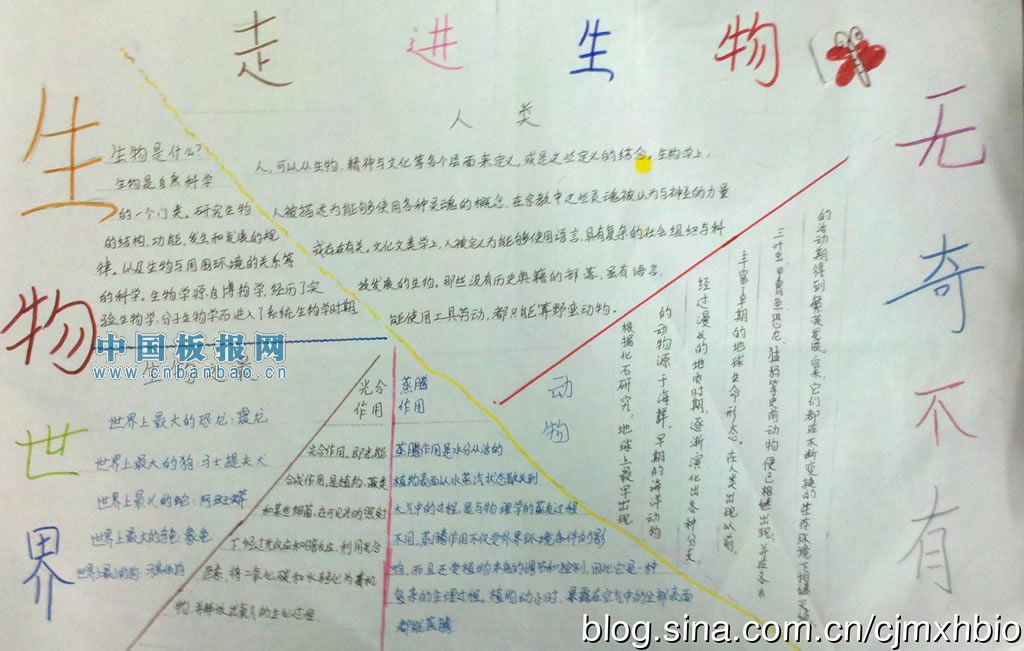 走进生物
生物世界
无奇不有
人类
人，可以从生物、精神与文化等各个层面来定义，或是这些定义的结合。生物学上，
人被描述为能够使用各种灵魂的概念，在宗教中这些灵魂被认为与神圣的力量
或存在有关。文化人类学上，人被定义为能够使用语言、具有复杂的社会组织与科
技发展的生物。那些没有历史典籍的部落，虽有语言，
能使用工具劳动，都只能算野蛮动物。
生物是什么？
生物是自然科学
的一个门类。研究生物
的结构、功能、发生和发展的规
律。以及生物与周围环境的关系等
的科学。生物学源自博物学，经历了实
验生物学、分子生物学而进入了系统生物学时期
中国板报网
www.cnbanbao.cn
世界上最大的恐龙：震龙
世界上最大的狗：马士提夫犬
世界上最大的龟：象龟
光合
作用
光合作用，即光能
合成作用，是植物、藻类
和某些细菌，在可见光的照射
下，经过光反应和暗反应，利用光合
色素，将二氧化碳和水转化为有机
物，并释放出氧气的生化过程
蒸腾
作用
蒸腾作用是水分从活的
植物表面以水蒸汽状态散失到
大气中的过程，是与物理学的蒸发过程
不同，蒸腾作用不仅受外界环境条件的影
响，而且还受植物本身的调节和控制，因此它是一种
复杂的生理过程。植物幼小时，暴露在空气中的全部表面
都能蒸腾
动物
根据化石研究，地球上最早出现
的动物源于海洋。早期的海洋动物
经过漫长的地质时期，逐渐演化出各种分支，
丰富了早期的地球生命形态。在人类出现以前，
三叶虫、甲胄鱼、恐龙、猛犸等史前动物便已相继出现，并在各自
的活动期得到繁荣发展。后来，它们都在不断变换的生存环境下相继灭绝
blog.sina.com.cn/cjmxhbio